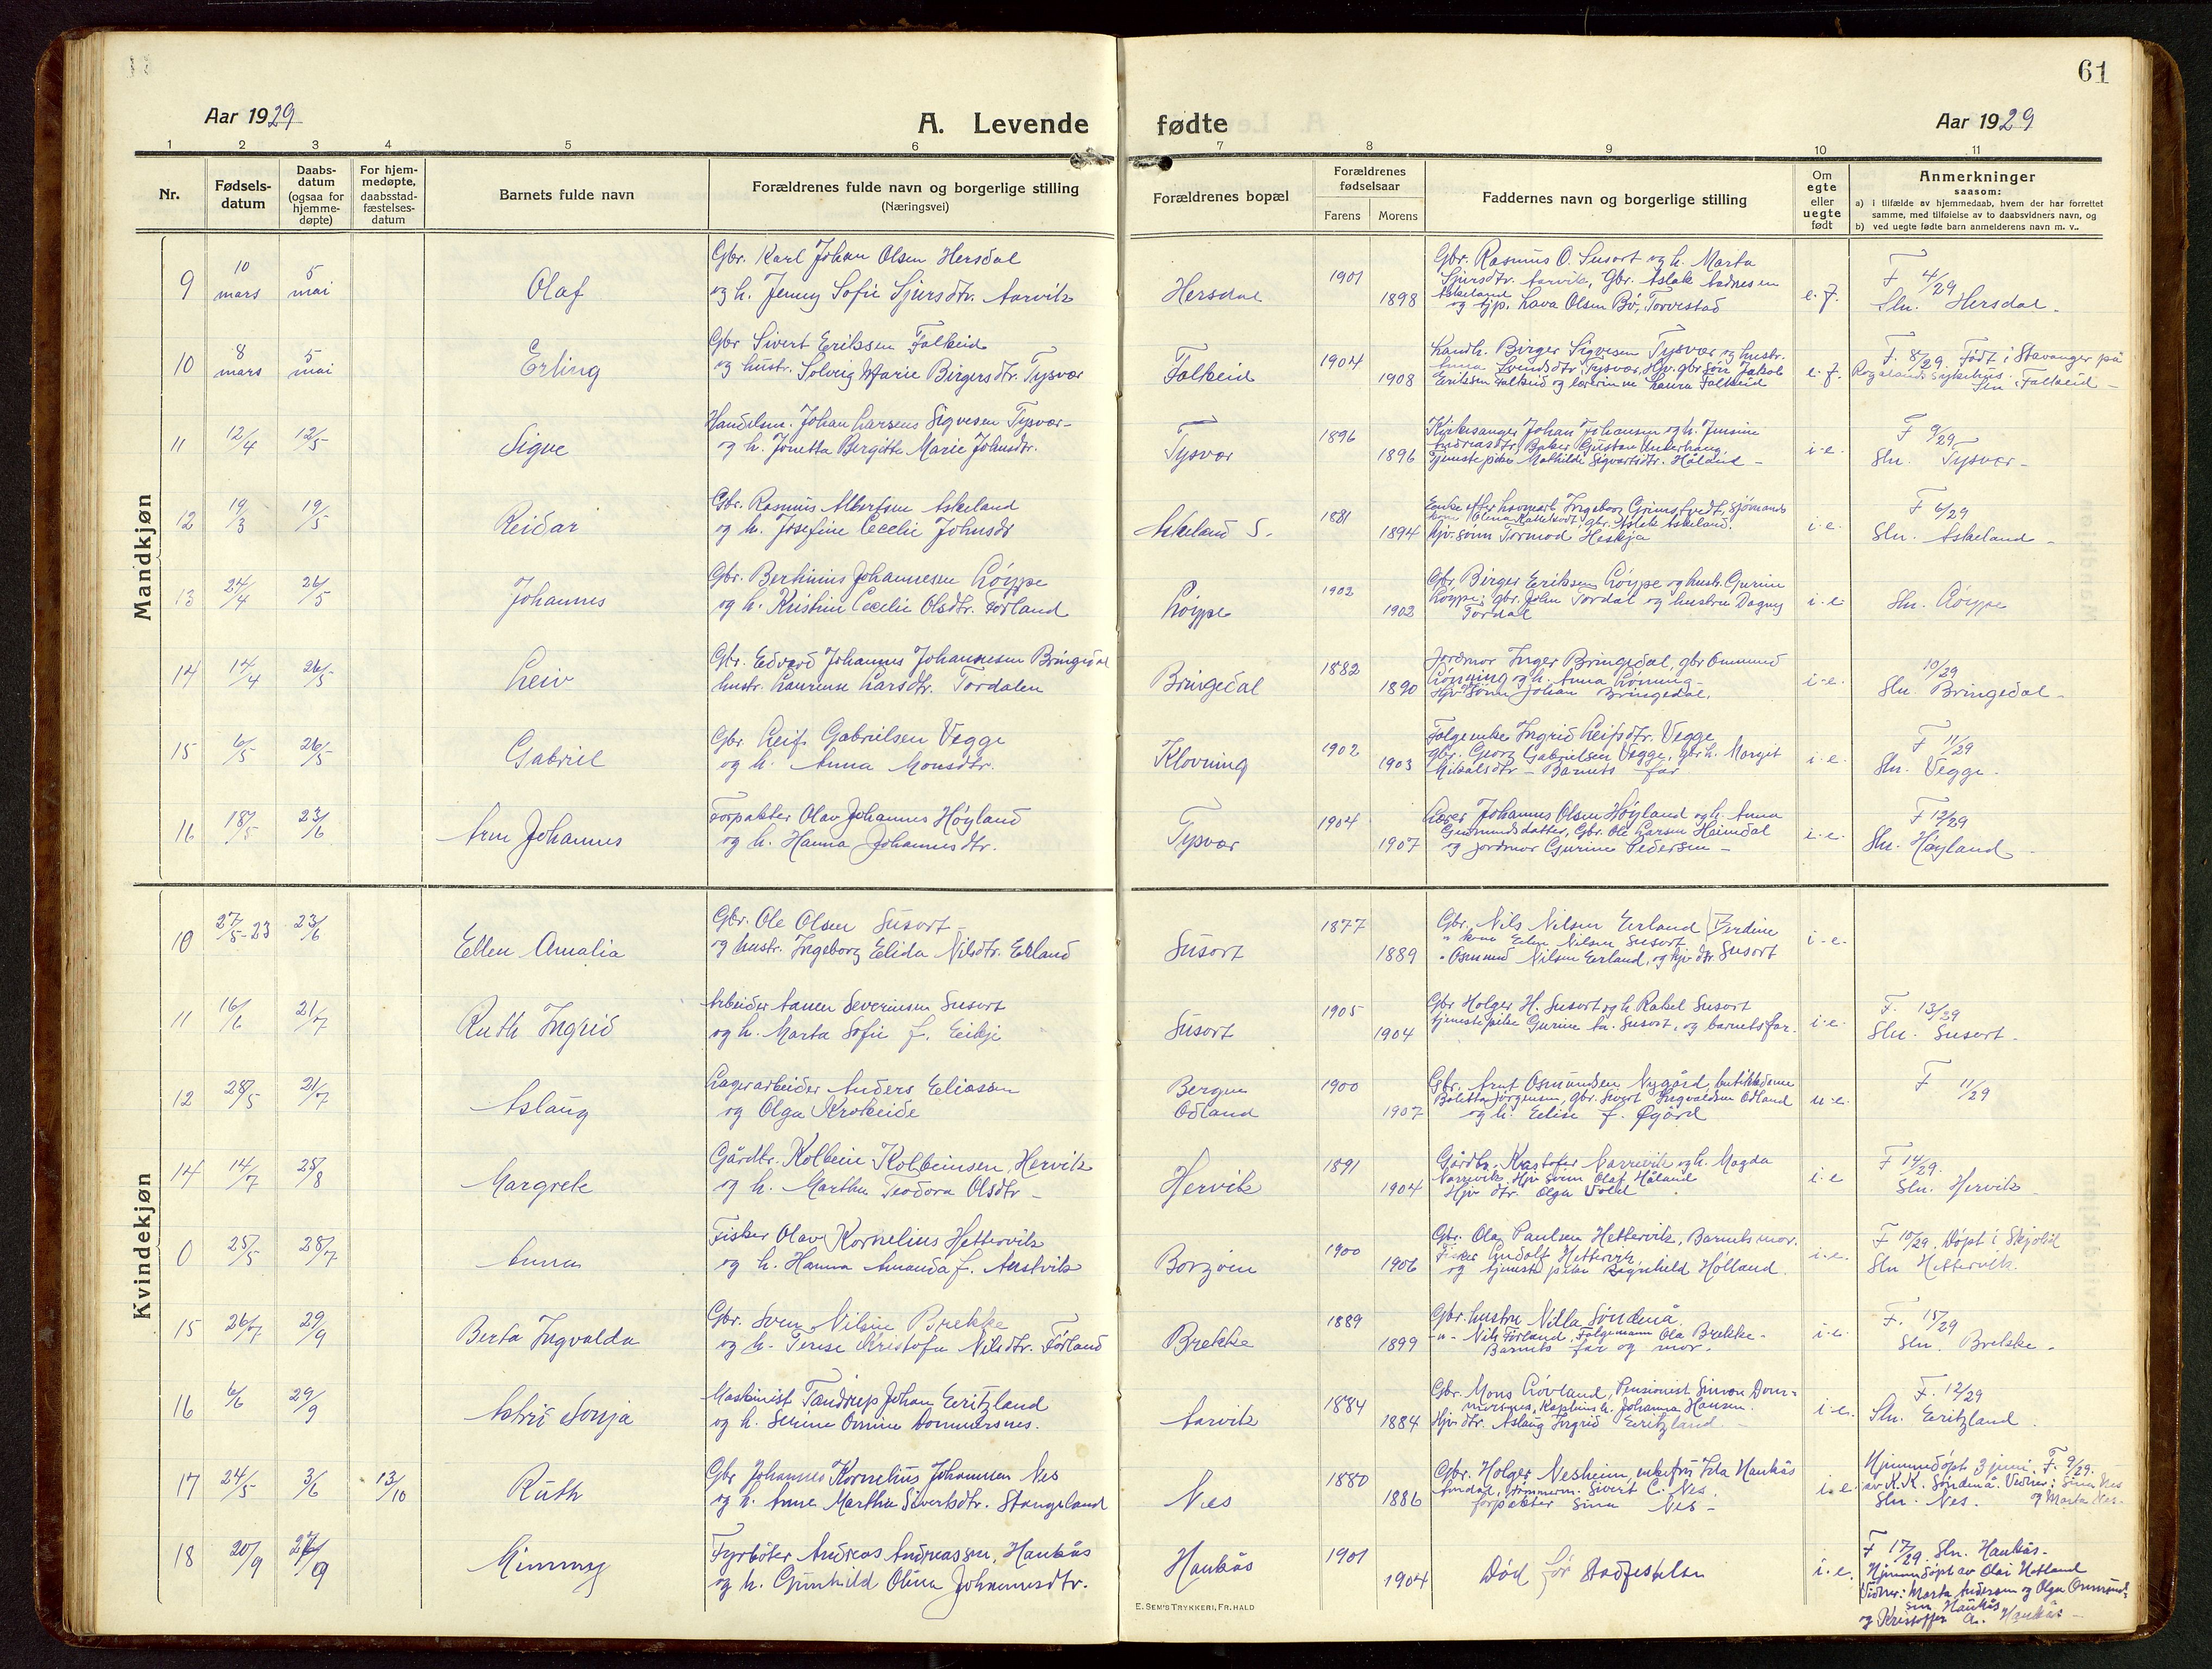 61
Aar 1929
A. Levende fødte
Aar 1929
1 2 3 4 5 6 7 8 9 10 11
Nr.
Fødsels-
datum
Daabs-
datum
(ogsaa for
hjemme-
døpte)
For hjem-
medøpte,
daabsstad-
fæstelses-
datum
Barnets fulde navn
Forældrenes fulde navn og borgerlige stilling
(Næringsvei)
Forældrenes bopæl
Forældrenes
fødselsaar
Farens Morens
Faddernes navn og borgerlige stilling
Om
egte
eller
uegte
født
Anmerkninger
saasom:
a) i tilfælde av hjemmedaab, hvem der har forrettet
samme, med tilføielse av to daabsvidners navn, og
b) ved uegte fødte barn anmelderens navn m. v..
Mandkjøn
9 10 mars 5 mai Olaf
Gbr. Karl Johan Olsen Hersdal
og h. Jenny Sofie Sjursdtr. Aarvik
Hersdal 1901 1898
Gbr. Rasmus O. Susort og h. Marta
Sjursdtr. Aarvik, Gbr. Aslak Aadnesen
Askeland
og tjp. Lava Olsen Bø, Torvestad
e. f.
F 4/29
Sln. Hersdal.
10 8 mars 5 mai Erling
Gbr Sivert Eriksen Falkeid
og hustr. Solveig Marie Birgersdtr. Tysvær
Falkeid 1904 1908
Landh. Birger Sigvesen Tysvær og hustr.
Anna Svendsdtr Tysvær, Hjv. gbr søn Jakob
Eriksen Falkeid og lærerinne Laura Falkeid
e. f.
F. 8/29. Født i Stavanger på
Rogaland sykehus.
Sln. Falkeid -
11 12/4 12/5 Sigve
Handelsm. Johan Larsens Sigvesen Tysvær-
og h. Jonetta Bergitte Marie Johnsdtr.
Tysvær 1896 1896
Kirkesanger Johan Johansen og h. Jensine
Andreasdtr, Baker Gustav Underhaug,
Tjenestepike Mathilde Sigvartsdtr. Håland -
i - e.
F 9/29
Sln. Tysvær -
12 19/3 19/5 Reidar
Gbr. Rasmus Albertsen Askeland
og h. Josefine Cecelie Johnsdr
Askeland S. 1881 1894
Enke efter Ingeborg Grimstvedt, sjømands
kone Olena, gbr. Aslak Askeland.
hjv. sønn Tormod Heskja
i - e.
F 6/29
Sln. Askeland -
13 24/4 26/5 Johannes
Gbr. Berthinius Johannesen Løype
og h. Kristine Cecelie Olsdtr. Førland
Løype 1902 1902
Gbr. Birger Eriksen Løype og hustr. Gurine
Løype; gbr. John Tordal og hustru Dagny
Tordal
i - e.
Sln. Løype
14 14/4 26/5 Leiv
Gbr. Edvard Johannes Johannesen Bringedal
hustr. Laurense Larsdtr. Tordalen
Bringedal 1882 1890
Jordmor Inger Bringedal, gbr Ommund
Lønning og h. Anna Lønning -
Hjv sønn Johan Bringedal.
i - e.
10/29
Sln. Bringedal -
15 6/5 26/5 Gabriel
Gbr. Leif Gabrielsen Vegge
og h. Anna Monsdtr.
Klovning 1902 1903
Folgeenke Ingrid Leifsdtr. Vegge
gbr. Georg Gabrielsen Vegge, gbr h. Margit
Mikalsdtr - Barnets far
i - e.
F 11/29
Sln. Vegge -
16 18/5 23/6 Arne Johannes
Forpakter Olav Johannes Høyland
og h. Hanna Johannesdtr.
Tysvær 1904 1907
Lærer Johannes Olsen Høyland og h. Anna
Gudmundsdatter, Gbr. Ole Larsen Heimdal
og jordmor Gurine Pedersen -
i - e.
F 12/29
Sln. Høyland -
Kvindekjøn
10 27/5-23 23/6 Ellen Amalia
Gbr. Ole Olsen Susort
og hustr. Ingeborg Elida Nilsdtr. Erland
Susort 1877 1889
Gbr. Nils Nilsen Erland
" kone Nilsen Susort
" Osmund Nilsen Eerland, og hjv dtr Susort
i - e.
11 16/6 21/7 Ruth Ingrid
Arbeider Aanen Severinsen Susort
og h. Marta Sofie f. Eikje
Susort 1905 1904
Gbr Holger H. Susort og h Rakel Susort
tjenestepike Gurine Susort, og barnets far.
i - e.
F. 13/29
Sln. Susort.
12 28/5 21/7 Aslaug
Lagerarbeider Anders Eliassen
og Olga Krokeide
Bergen
Odland
1900 1907
Gbr. Arnt Osmundsen Nygård, butikkdame
Bolette Jørgensen, gbr. Sivert Ingvaldsen Odland
og h. Elise f. Øgård
u - e.
F 11/29
14 14/7 25/8 Margrete
Gårdbr. Kolbein Kolbeinsen, Hervik
og h. Martha Teodora Olsdtr -
Hervik 1891 1904
Gårdbr. Kristofer Narrevik og h. Magda
Narrevik. Hjv sønn Olaf Håland
Hjv dtr. Olga Vold
i - e
F 14/29.
Sln. Hervik
0 25/5 28/7 Anna
Fisker Olav Kornelius Hettervik
og h. Hanna Amanda f. Austvik
Borgøen 1900 1906
Gbr. Ola Paulsen Hettervik, Barnets mor.
Fisker Hettervik
og tjenestepike Ragnhild Hølland.
i - e.
F 10/29. Døpt i Skjold
Sln Hettervik.
15 26/7 29/9 Berta Ingvalda
Gbr. Sven Nilsen Brekke
og h. Terese Kristofa Nilsdtr. Førland
Brekke 1889 1899
Gbr. hustru Nilla Søndenå.
- " - Nils Førland, Følgemann Ola Brekke -
Barnets far og mor.
i - e.
F. 15/29
Sln. Brekke.
16 6/6 29/9 Astri Sonja
Maskinist Tandrup Johan Eeritzland
og h. Serine Omine Dommersnes.
Aarvik 1884 1884
Gbr. Mons Løvland, Pensionist Simon Dom-
mersnes, Kapteins h. Johanna Hansen.
Hjv dtr. Aslaug Ingrid Eeritzland.
i - e.
F. 12/29
Sln. Eeritzland.
17 24/5 3/6 13/10 Ruth
Gbr. Johannes Kornelius Johannsen Nes
og h. Anne Martha Sivertsdtr. Stangeland
Nes 1880 1886
Gbr. Holger Nesheim, enkefru Ida Haukås
Amdal, tømmerm. Sivert C. Nes.
forpakter Sina Nes -
i - e.
Hjemmedøpt 3 juni. F. 9/29.
av K.K. Søndenå. Vidner: Sina Nes
Sln. Nes. og Marta Nes.
18 20/9 9 Kimmy
Fyrbøter Andreas Andreassen, Haukås
og h. Gunhild Olina Johannesdtr.
Haukås 1901 1904
Død før stadfestelsen
i - e.
F 17/29. Sln. Haukås -
Hjemmedøpt av Olai Hetland
Vidner: Marta Andersen og Olga Osmund-
sen Haukås
og Kristoffer A. Haukås -
E. SEM'S TRYKKERI, FR. HALD